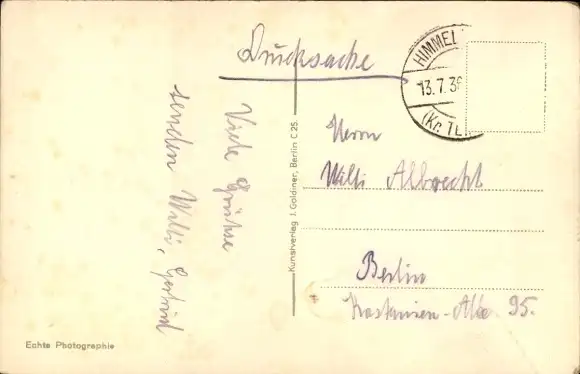 Drucksache
HIMMEL
13.7.36
(Kr. TL
Viele Grüsse
senden Willi, Gertrud
Kunstverlag J. Goldiner, Berlin C 25.
Herrn
Willi Albrecht
Berlin
Kastanien-Alle 95.
Echte Photographie